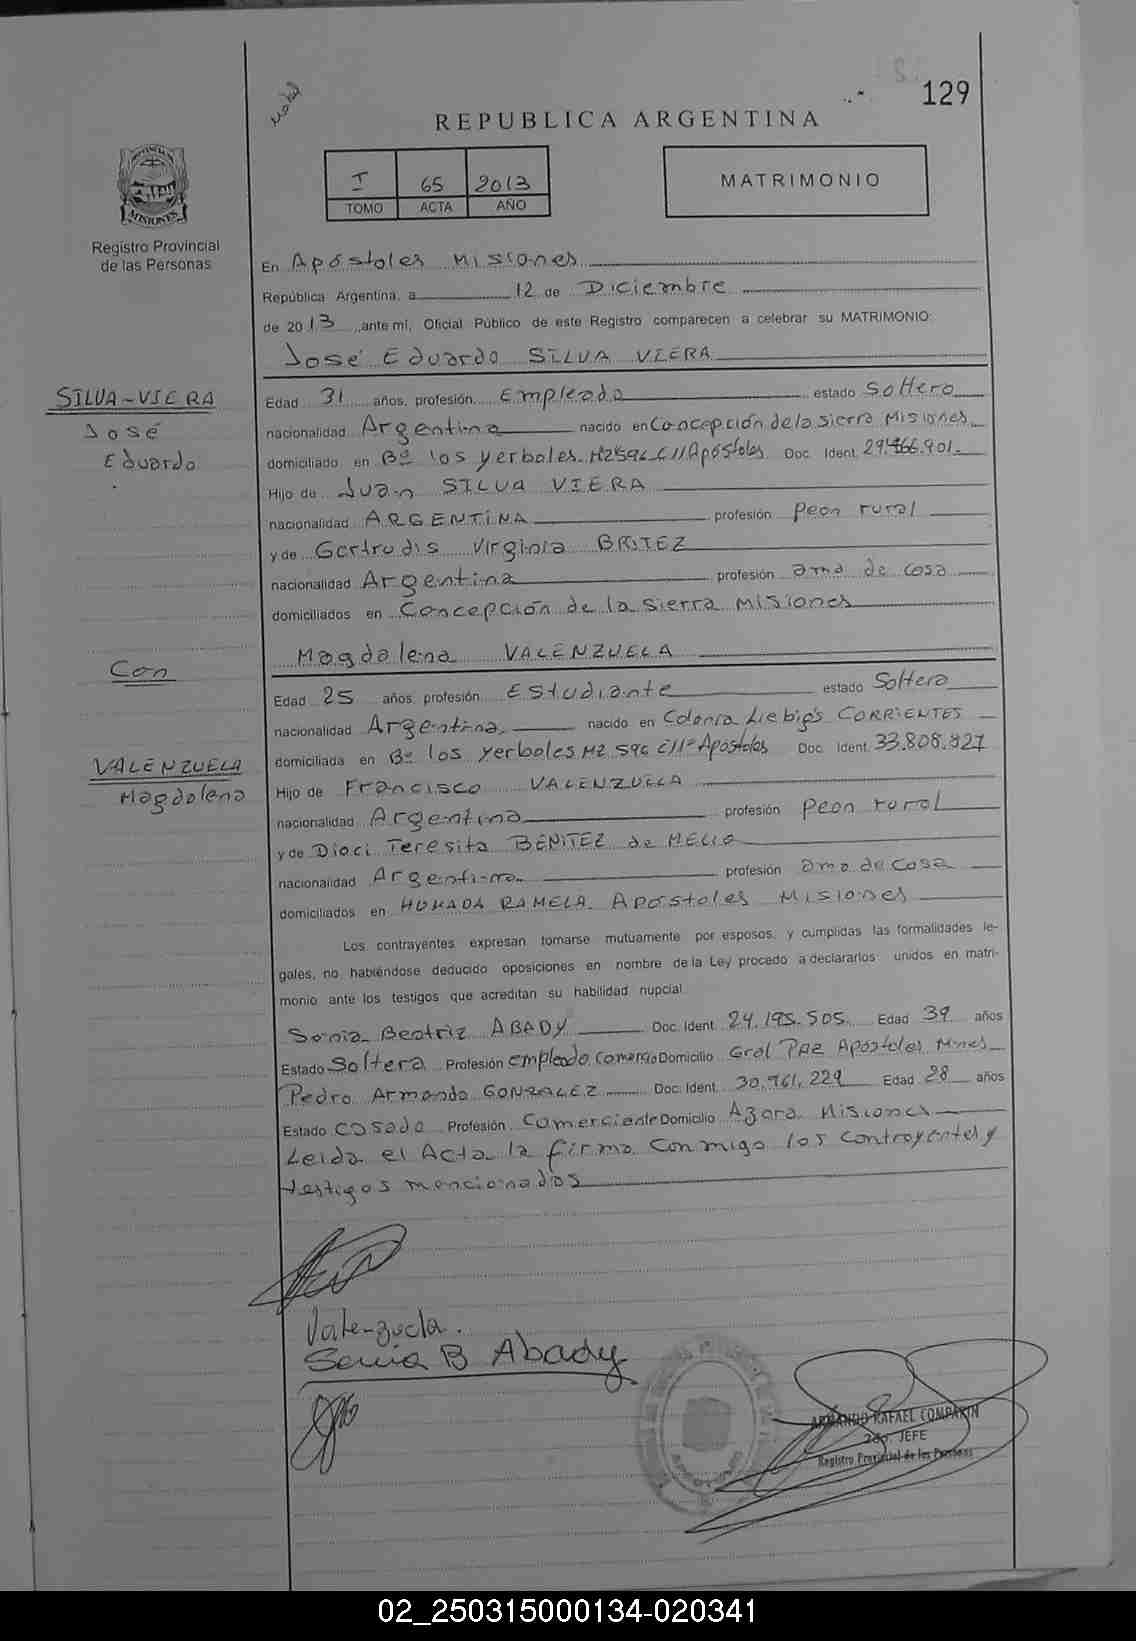 129
REPUBLICA ARGENTINA
I 65 2013
TOMO ACTA AÑO
MATRIMONIO
PROVINCIA DE
MISIONES
Registro Provincial
de las Personas
En Apóstoles Misiones
República Argentina, a 12 de Diciembre
de 2013, ante mi, Oficial Público de este Registro comparecen a celebrar su MATRIMONIO:
José Eduardo SILVA VIERA
SILVA-VIERA
José
Eduardo
Edad 31 años, profesión Empleado estado Soltero
nacionalidad Argentina nacido en Concepción de la sierra Misiones
domiciliado en Bº los yerbales MZ 596 C/11 Apóstoles Doc. Ident. 29.466.901.
Hijo de Juan SILVA VIERA
nacionalidad ARGENTINA profesión Peon rural
y de Gertrudis Virginia BRITEZ
nacionalidad Argentina profesión ama de casa
domiciliados en Concepción de la sierra Misiones
Con
Magdalena VALENZUELA
Edad 25 años, profesión Estudiante estado Soltera
nacionalidad Argentina nacido en Colonia Liebig's CORRIENTES
VALENZUELA
Magdalena
domiciliada en Bº los yerbales MZ 596 C/11º Apóstoles Doc. Ident. 33.808.827
Hijo de Francisco VALENZUELA
nacionalidad Argentina profesión Peon rural
y de Diaci Teresita BENITEZ de MELLO
nacionalidad Argentina profesión ama de casa
domiciliados en HUMADA RAMELA. Apostoles Misiones
Los contrayentes expresan tomarse mutuamente por esposos, y cumplidas las formalidades le-
gales, no habiéndose deducido oposiciones en nombre de la Ley procedo a declararlos unidos en matri-
monio ante los testigos que acreditan su habilidad nupcial.
Sonia Beatriz ABADY Doc. Ident. 24.195.505. Edad 39 años
Estado Soltera Profesión empleado Comercio Domicilio Gral PAZ Apóstoles Mnes
Pedro Armando GONZALEZ Doc. Ident. 30.961.229 Edad 28 años
Estado Casado Profesión Comerciante Domicilio Azara Misiones
Leida el Acta la firma conmigo los contrayentes y
testigos mencionados
Valenzuela.
Sonia B Abady
ARMANDO RAFAEL COMPARIN
2do. JEFE
Registro Provincial de las Personas
02_250315000134-020341